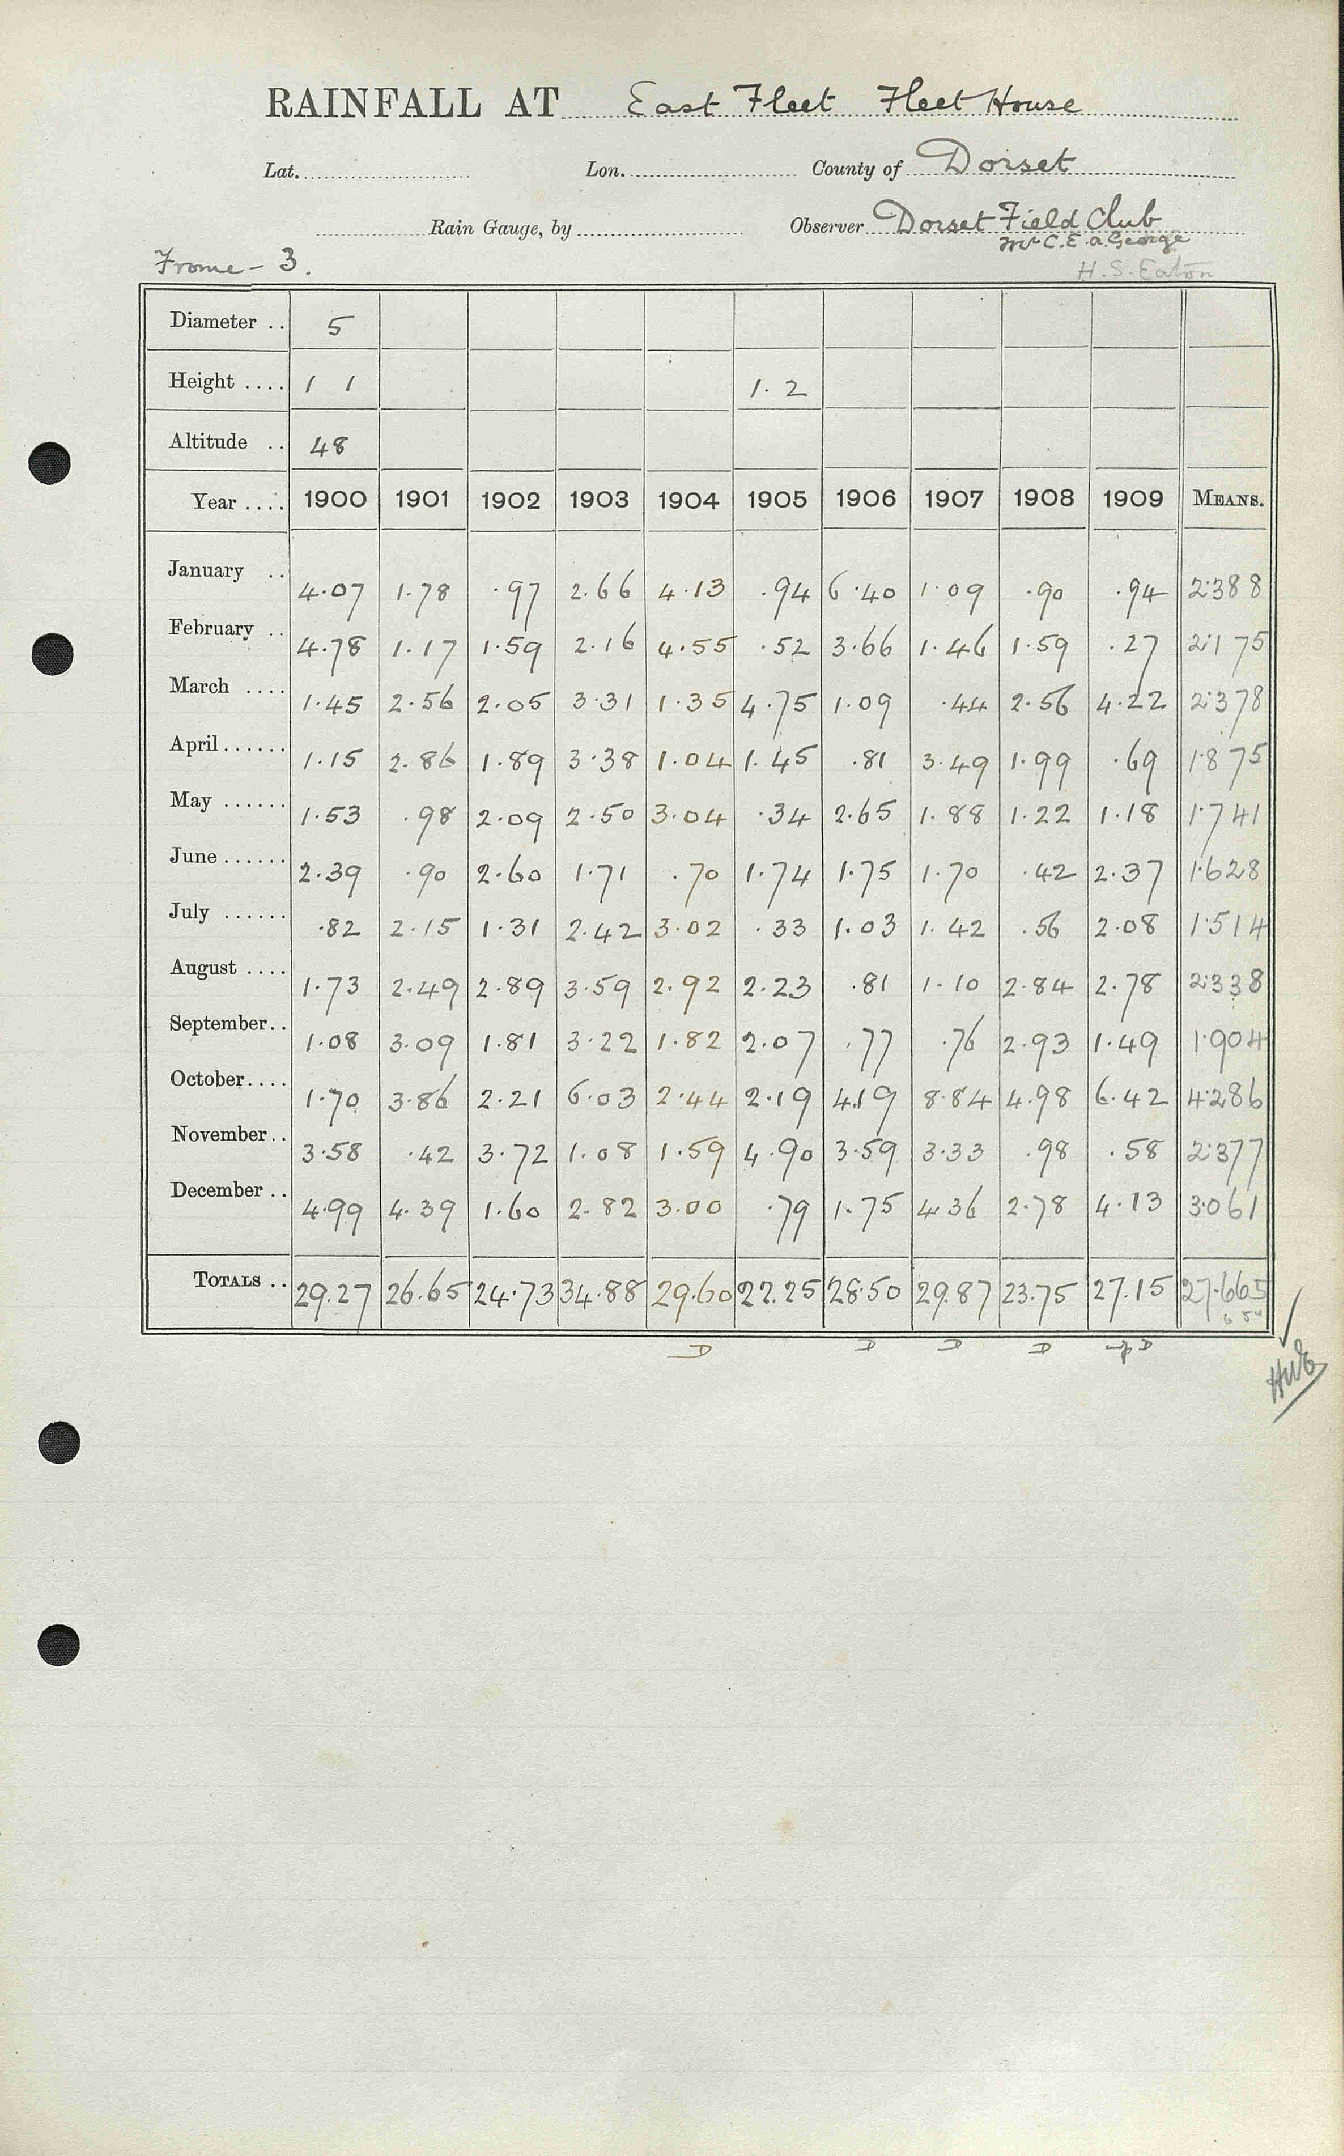 RAINFALL AT East Fleet Fleet House
Lat. Lon. County of Dorset
Rain Gauge, by Observer Dorset Field Club
Mr C.E.a.George
Frome - 3. H.S. Eaton
Diameter .. 5
Height .... 1 1 1.2
Altitude .. 48
Year .... 1900 1901 1902 1903 1904 1905 1906 1907 1908 1909 MEANS.
January .. 4.07 1.78 .97 2.66 4.13 .94 6.40 1.09 .90 .94 2.388
February .. 4.78 1.17 1.59 2.16 4.55 .52 3.66 1.46 1.59 .27 2.175
March .... 1.45 2.56 2.05 3.31 1.35 4.75 1.09 .44 2.56 4.22 2.378
April...... 1.15 2.86 1.89 3.38 1.04 1.45 .81 3.49 1.99 .69 1.875
May ...... 1.53 .98 2.09 2.50 3.04 .34 2.65 1.88 1.22 1.18 1.741
June ...... 2.39 .90 2.60 1.71 .70 1.74 1.75 1.70 .42 2.37 1.628
July ...... .82 2.15 1.31 2.42 3.02 .33 1.03 1.42 .56 2.08 1.514
August .... 1.73 2.49 2.89 3.59 2.92 2.23 .81 1.10 2.84 2.78 2.338
September.. 1.08 3.09 1.81 3.22 1.82 2.07 .77 .76 2.93 1.49 1.904
October.... 1.70 3.86 2.21 6.03 2.44 2.19 4.19 8.84 4.98 6.42 4.286
November.. 3.58 .42 3.72 1.08 1.59 4.90 3.59 3.33 .98 .58 2.377
December .. 4.99 4.39 1.60 2.82 3.00 .79 1.75 4.36 2.78 4.13 3.061
TOTALS .. 29.27 26.65 24.73 34.88 29.60 22.25 28.50 29.87 23.75 27.15 27.665
D D D D D